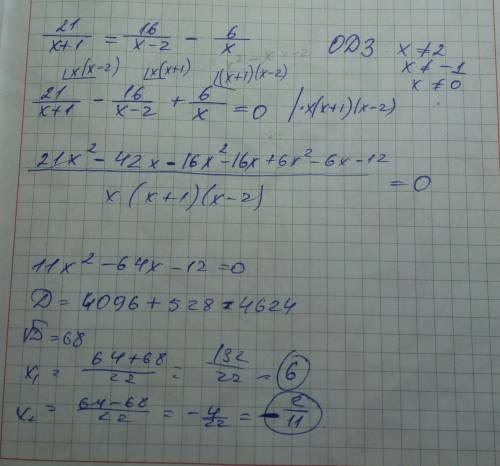 21/(x+1) = 16/(x-2) - 6/x ОДЗ x ≠ 2
x ≠ -1
x ≠ 0
⌊x(x-2) ⌊x(x+1) ⌊(x+1)(x-2)
21/(x+1) - 16/(x-2) + 6/x = 0 /·x(x+1)(x-2)
(21x² - 42x - 16x² - 16x + 6x² - 6x - 12)/(x(x+1)(x-2)) = 0
11x² - 64x - 12 = 0
D = 4096 + 528 = 4624
√D = 68
x₁ = (64+68)/22 = 132/22 = 6
x₂ = (64-68)/22 = -4/22 = -2/11